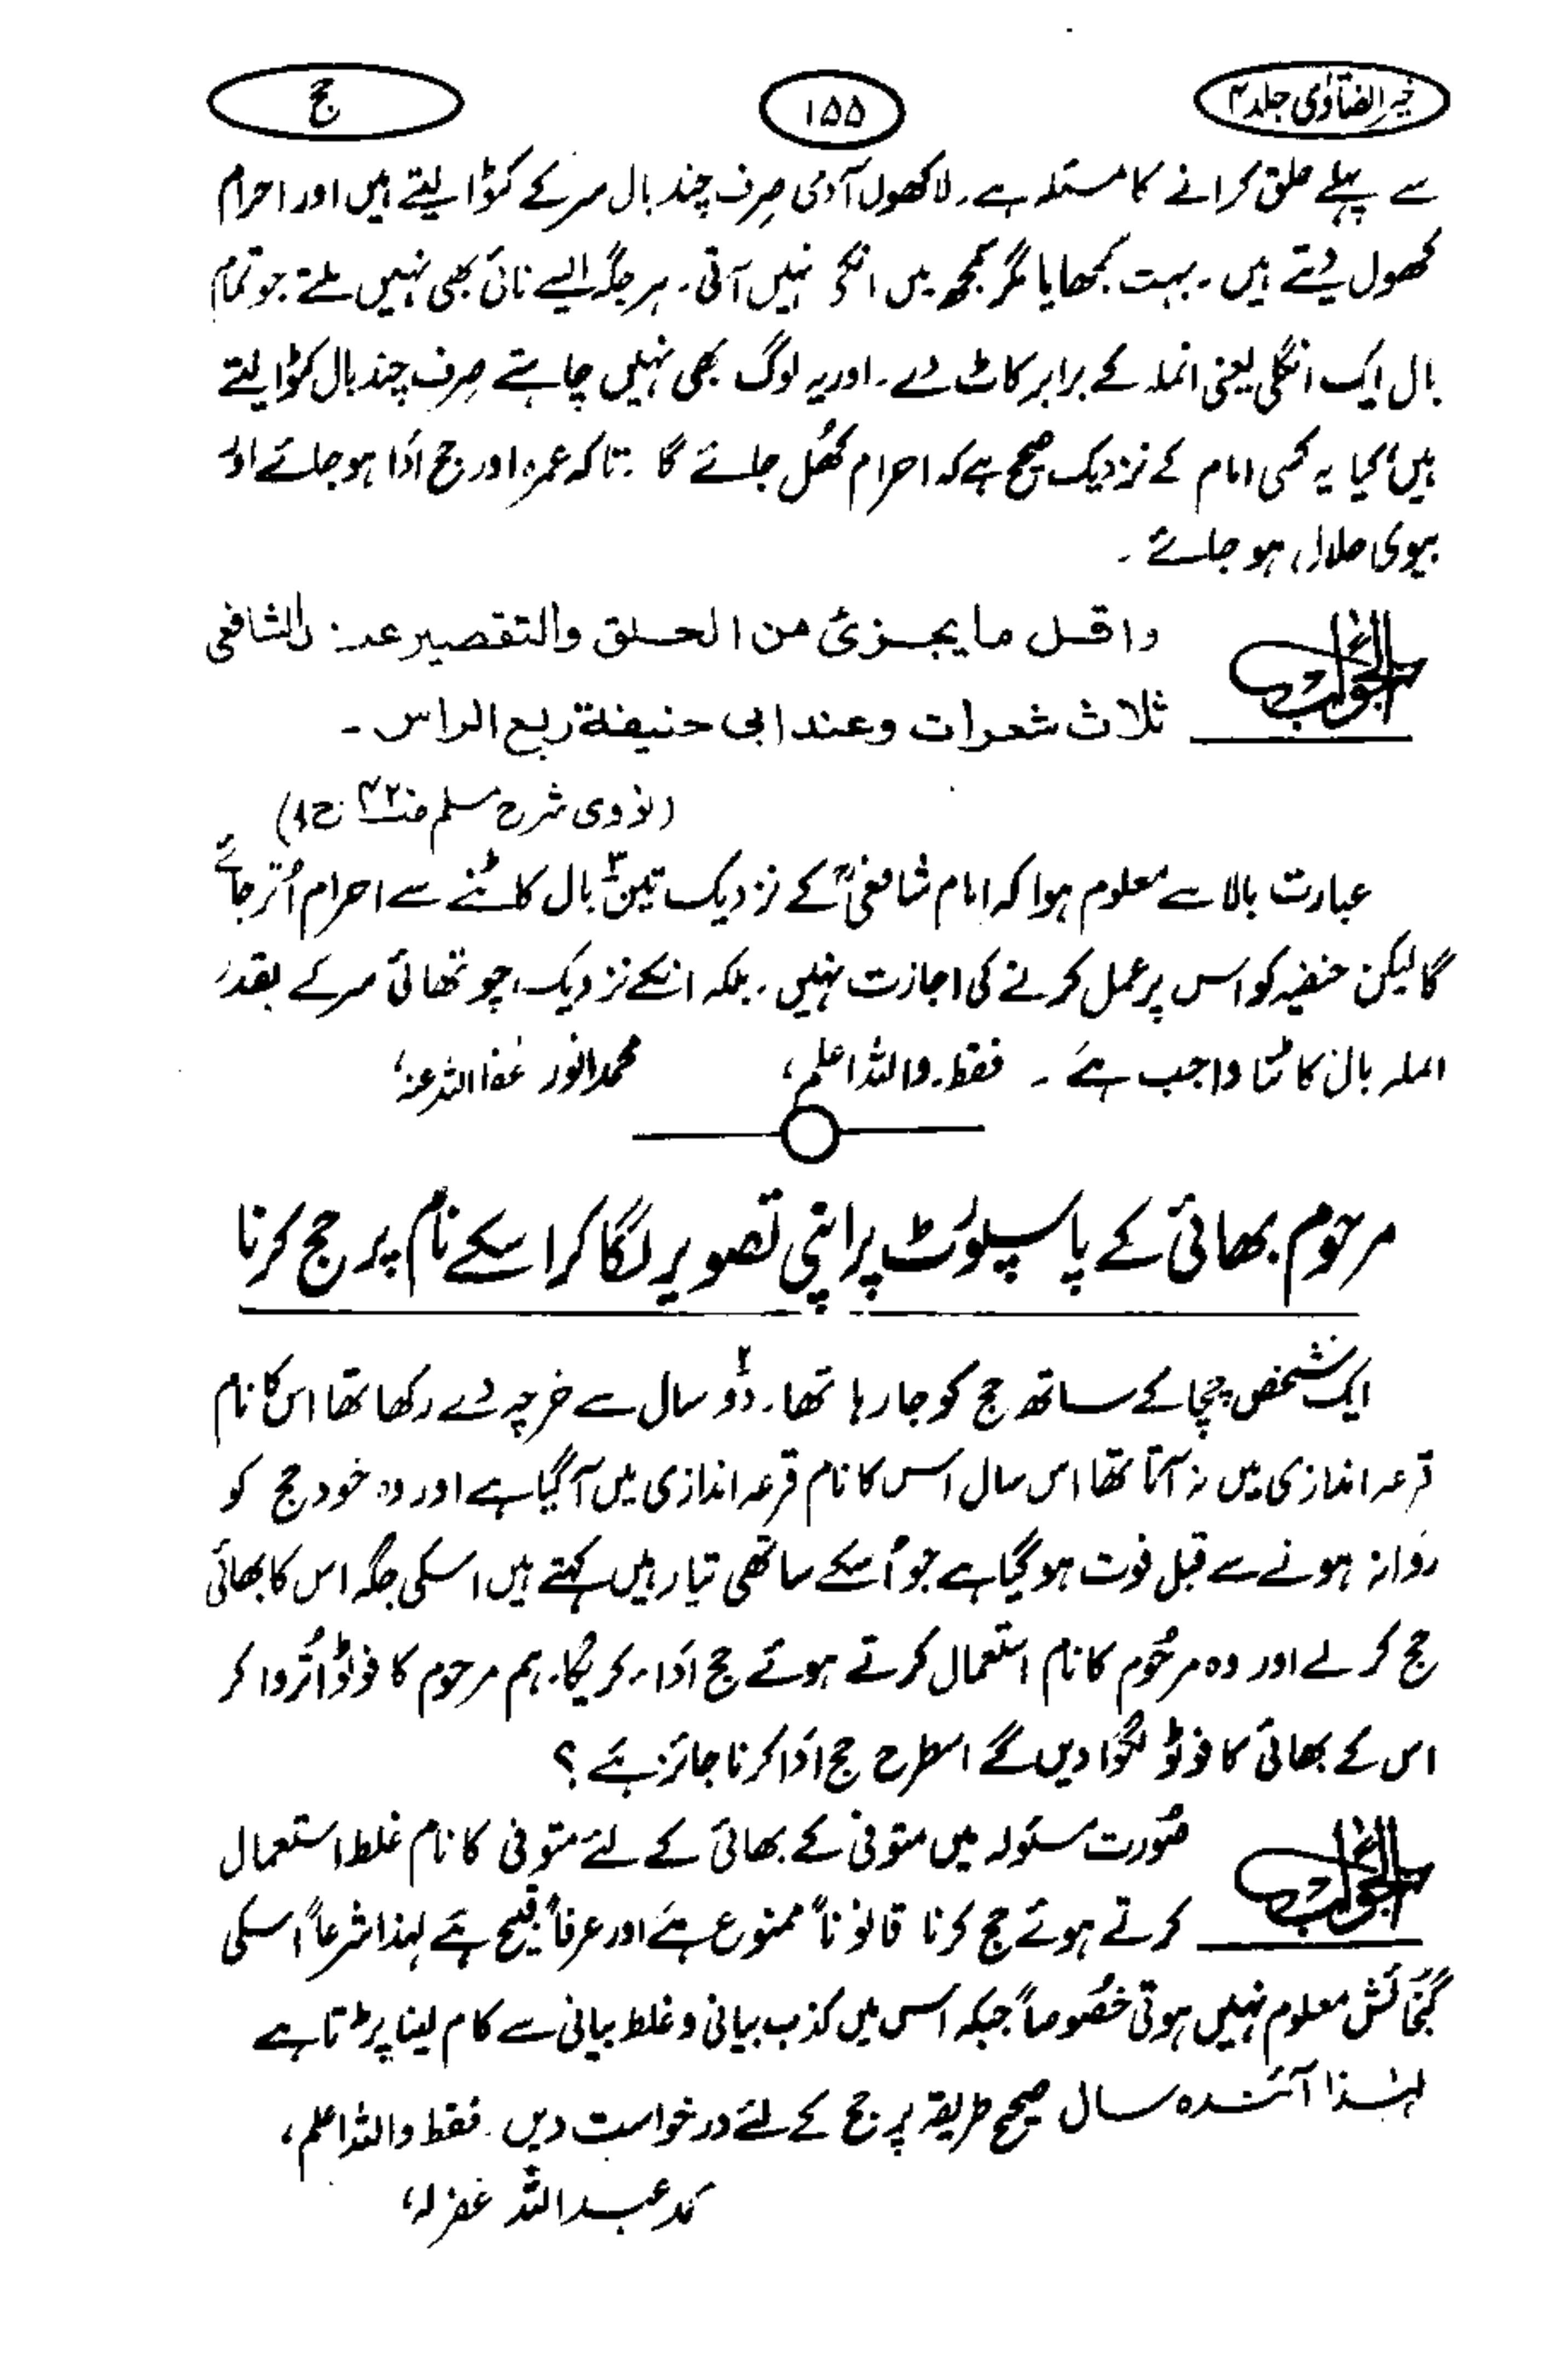 خیر الفتاوی جلد ۴
۱۵۵
حج
سے پہلے حلق کرانے کا مسئلہ ہے۔ لاکھوں آدمی صِرف چند بال سر کے کٹوا لیتے ہیں اور احرام
کھول دیتے ہیں۔ بہت سمجھایا مگر سمجھ میں انکی نہیں آتی۔ ہر جگہ ایسے نائی بھی نہیں ملتے جو تمام
بال ایک انگلی یعنی انملہ کے برابر کاٹ دے۔ اور یہ لوگ بھی نہیں چاہتے صِرف چند بال کٹوا لیتے
ہیں کیا یہ کسی امام کے نزدیک صحیح ہے کہ احرام کھُل جائے گا۔ تاکہ عمرہ اور حج ادَا ہو جائے اور
بیوی حلال ہو جائے۔
الجواب
واقل ما يجزئ من الحلق والتقصير عند الشافعی
ثلاث شعرات وعند ابی حنيفة ربع الراس ۔
(نووی شرح مسلم ج۱)
عبارت بالا سے معلوم ہوا کہ امام شافعیؒ کے نزدیک تین۳ بال کاٹنے سے احرام اُتر جائے
گا لیکن حنفیہ کو اس پر عمل کرنے کی اجازت نہیں۔ بلکہ انکے نزدیک چوتھائی سر کے بقدر
انملہ بال کاٹنا واجب ہے ۔ فقط۔ واللہ اعلم، محمد انور عفا اللہ عنہ،
مرحوم بھائی کے پاسپورٹ پر اپنی تصویر لگا کر اسکے نام پر حج کرنا
ایک شخص چچا کے ساتھ حج کو جا رہا تھا۔ دُو۲ سال سے خرچہ دے رکھا تھا اس کا نام
قرعہ اندازی میں نہ آتا تھا اس سال اس کا نام قرعہ اندازی میں آگیا ہے اور وہ خود حج کو
روانہ ہونے سے قبل فوت ہو گیا ہے جو اُسکے ساتھی تیار ہیں کہتے ہیں اسکی جگہ اس کا بھائی
حج کر لے اور وہ مرحُوم کا نام استعمال کرتے ہوئے حج ادَا کریگا۔ ہم مرحوم کا فوٹو اتُروا کر
اس کے بھائی کا فوٹو لگوا دیں گے اسطرح حج ادَا کرنا جائز ہے ؟
الجواب
صُورت مسئولہ میں متوفی کے بھائی کے لئے متوفی کا نام غلط استعمال
کرتے ہوئے حج کرنا قانوناً ممنوع ہے اور عرفاً قبیح ہے لہذا شرعاً اسکی
گنجائش معلوم نہیں ہوتی خصُوصاً جبکہ اس میں کذب بیانی و غلط بیانی سے کام لینا پڑتا ہے
لہٰذا آئندہ سال صحیح طریقہ پر حج کے لئے درخواست دیں۔ فقط واللہ اعلم،
محمد عبد اللہ غفرلہ،